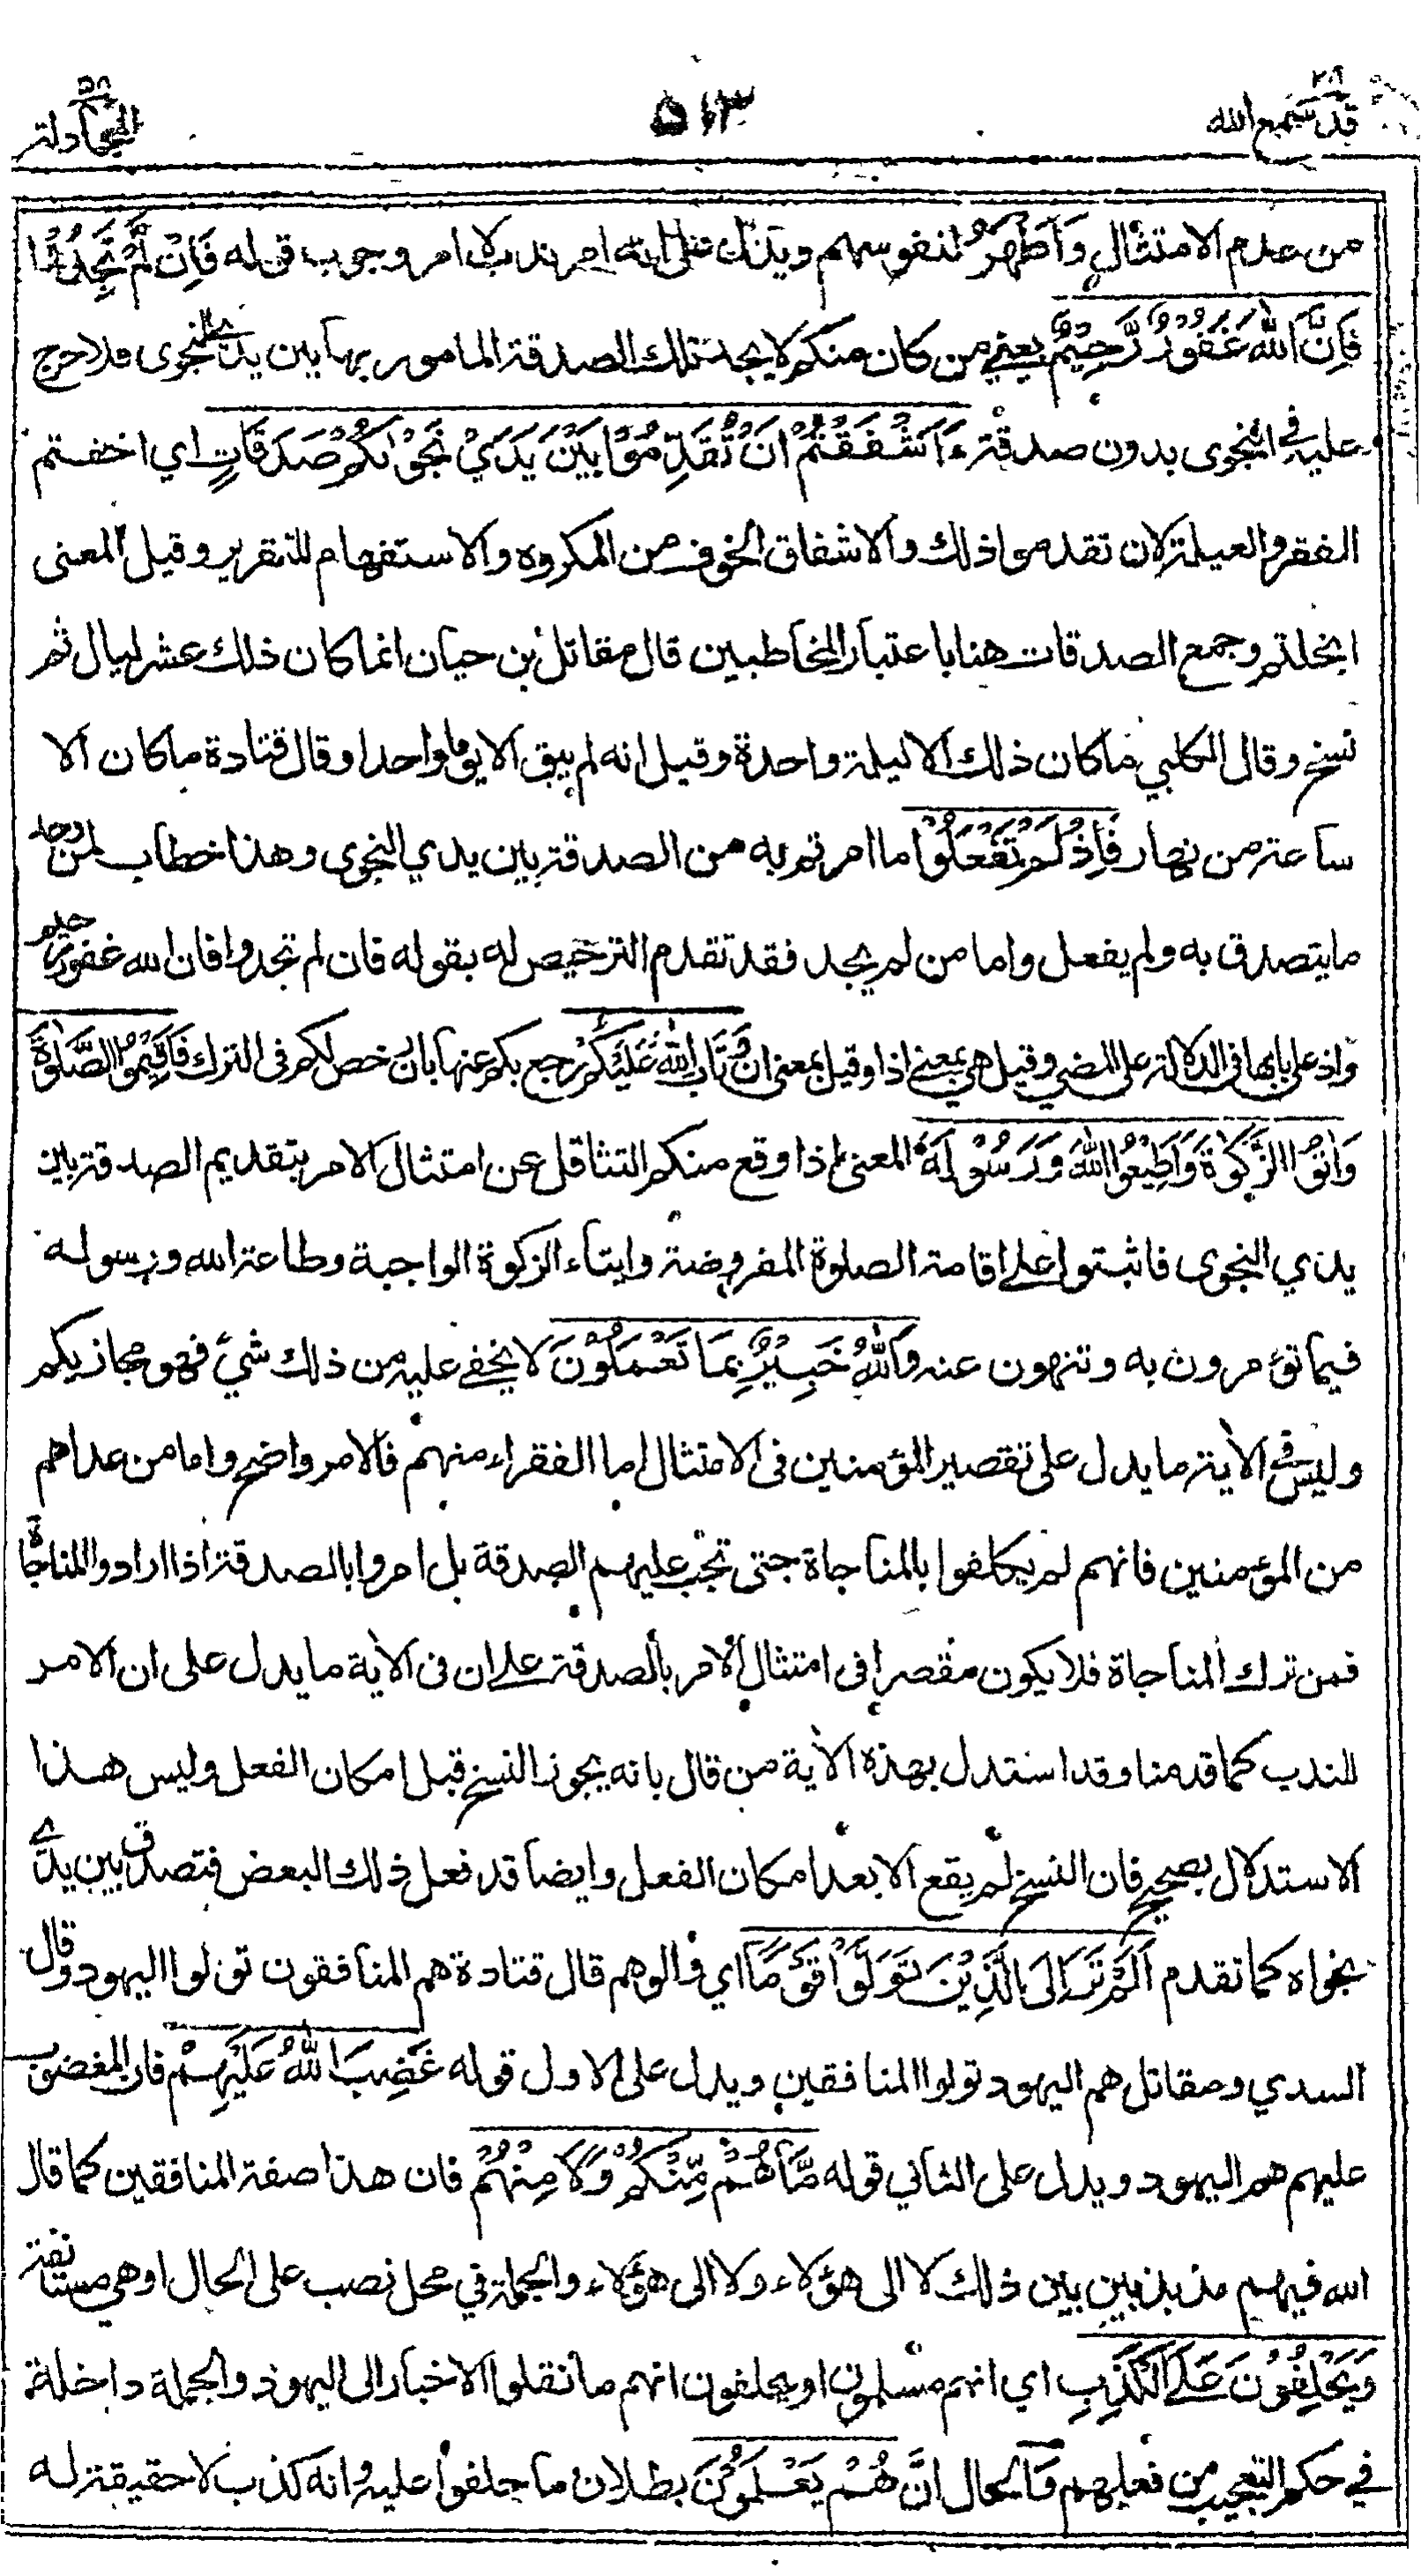 قد سمع الله ٢٨
٥١٣
المجادلة ٥٨
من عدم الامتثال وَاَطْهَرُ لنفوسهم ويدل على انه امر ندب لا امر وجوب قوله فَاِنْ لَّمْ تَجِدُوْا
فَاِنَّ اللّٰهَ غَفُوْرٌ رَّحِيْمٌ يعني من كان منكم لا يجد تلك الصدقة المامور بها بين يدي النجوى فلا حرج
عليه في النجوى بدون صدقة ءَاَشْفَقْتُمْ اَنْ تُقَدِّمُوْا بَيْنَ يَدَيْ نَجْوٰىكُمْ صَدَقَاتٍ اي اخفتم
الفقر والعيلة لان تقدموا ذلك والاشفاق الخوف من المكروه والاستفهام للتقرير وقيل المعنى
ابخلتم وجمع الصدقات هنا باعتبار المخاطبين قال مقاتل بن حيان انما كان ذلك عشر ليال ثم
نسخ وقال الكلبي ما كان ذلك الا ليلة واحدة وقيل انه لم يبق الا يوما واحدا وقال قتادة ما كان الا
ساعة من نهار فَاِذْ لَمْ تَفْعَلُوْا ما امرتم به من الصدقة بين يدي النجوى وهذا خطاب لمن وجد
ما يتصدق به ولم يفعل واما من لم يجد فقد تقدم الترخيص له بقوله فان لم تجدوا فان الله غفور رحيم
واذ على بابها في الدلالة على المضي وقيل هي بمعنى اذا وقيل بمعنى ان وَتَابَ اللّٰهُ عَلَيْكُمْ رجع بكم عنها بان رخص لكم في الترك فَاَقِيْمُوا الصَّلٰوةَ
وَاٰتُوا الزَّكٰوةَ وَاَطِيْعُوا اللّٰهَ وَرَسُوْلَهٗ المعنى اذا وقع منكم التثاقل عن امتثال الامر بتقديم الصدقة بين
يدي النجوى فاثبتوا على اقامة الصلوة المفروضة وايتاء الزكوة الواجبة وطاعة الله ورسوله
فيما تؤمرون به وتنهون عنه وَاللّٰهُ خَبِيْرٌۢ بِمَا تَعْمَلُوْنَ لا يخفى عليه من ذلك شيء فهو مجازيكم
وليس في الاٰية ما يدل على تقصير المؤمنين فى الامتثال اما الفقراء منهم فالامر واضح واما من عداهم
من المؤمنين فانهم لم يكلفوا بالمناجاة حتى تجب عليهم الصدقة بل امروا بالصدقة اذا ارادوا المناجاة
فمن ترك المناجاة فلا يكون مقصرا فى امتثال الامر بالصدقة على ان فى الاٰية ما يدل على ان الامر
للندب كما قدمنا وقد استدل بهذه الاٰية من قال بانه يجوز النسخ قبل امكان الفعل وليس هذا
الاستدلال بصحيح فان النسخ لم يقع الا بعد امكان الفعل وايضا قد فعل ذلك البعض فتصدق بين يدي
نجواه كما تقدم اَلَمْ تَرَ اِلَى الَّذِيْنَ تَوَلَّوْا قَوْمًا اي والوهم قال قتادة هم المنافقون تولوا اليهود وقال
السدي ومقاتل هم اليهود تولوا المنافقين ويدل على الاول قوله غَضِبَ اللّٰهُ عَلَيْهِمْ فان المغضوب
عليهم هم اليهود ويدل على الثاني قوله مَّا هُمْ مِّنْكُمْ وَلَا مِنْهُمْ فان هذا صفة المنافقين كما قال
الله فيهم مذبذبين بين ذلك لا الى هؤلاء ولا الى هؤلاء والجملة في محل نصب على الحال او هي مستانفة
وَيَحْلِفُوْنَ عَلَى الْكَذِبِ اي انهم مسلمون او يحلفون انهم ما نقلوا الاخبار الى اليهود والجملة داخلة
في حكم التعجيب من فعلهم وَالحال انَّ هُمْ يَعْلَمُوْنَ بطلان ما حلفوا عليه وانه كذب لا حقيقة له